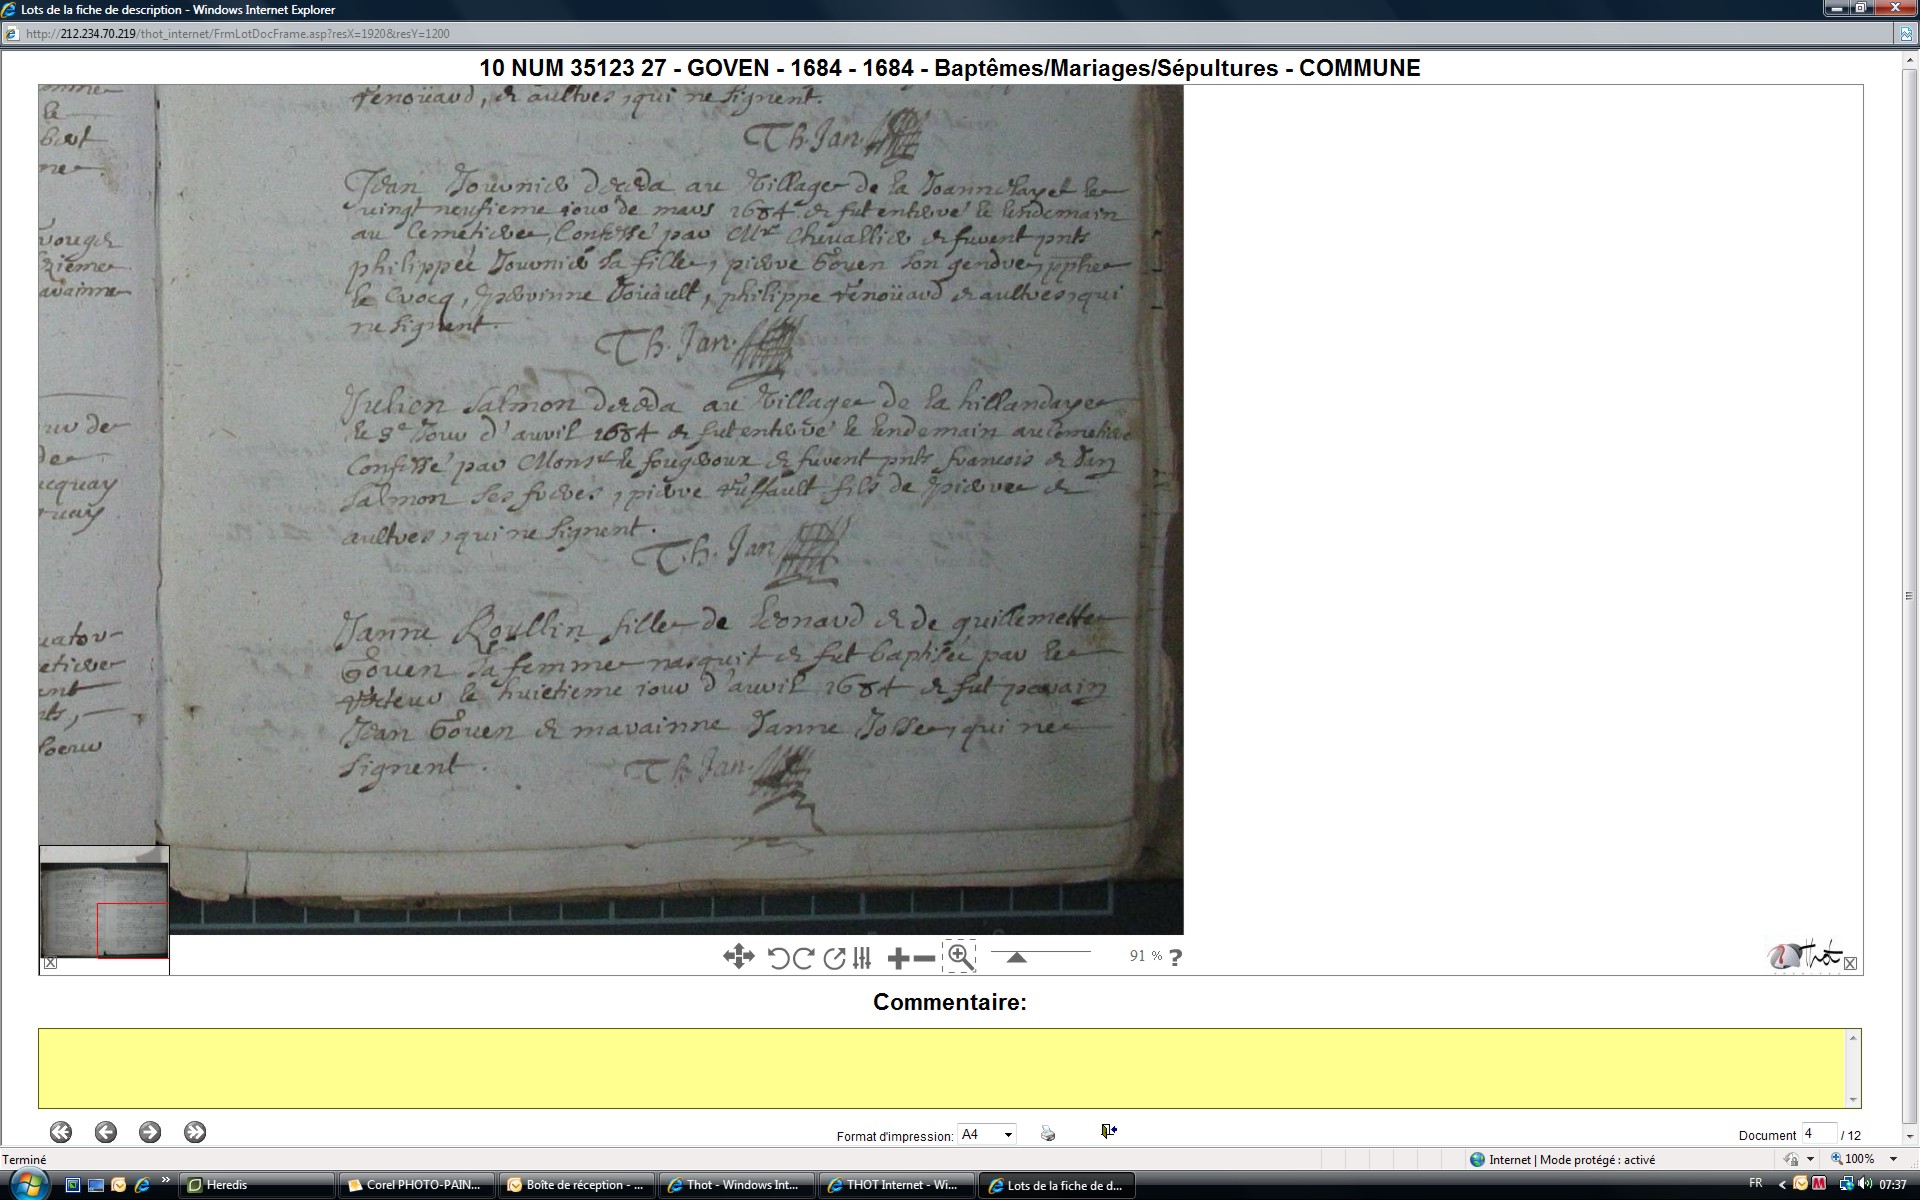 Lots de la fiche de description - Windows Internet Explorer
http://212.234.70.219/thot_internet/FrmLotDocFrame.asp?resX=1920&resY=1200
10 NUM 35123 27 - GOVEN - 1684 - 1684 - Baptêmes/Mariages/Sépultures - COMMUNE
renoüard, & aultres, qui ne signent.
Th. Jan
Jean Journier deceda au village de la
vingt neufieme iour de mars 1684 & fut enterré le lendemain
au Cemetiere, Confessé par Mr Chevallier & furent pnts
philippée Journier sa fille, pierre Goven son gendre,
le Crocq, perrinne Touault, philippe renoüard & aultres, qui
ne signent.
Th. Jan
Julien Salmon deceda au village de la hillandaye
le 8e Jour d'auril 1684 & fut enterré le lendemain au cemetiere
Confessé par Monsr le fougeroux & furent pnts francois & Jan
Salmon ses freres, pierre ruffault fils de pierre &
aultres, qui ne signent.
Th. Jan
Janne Roullin fille de Leonard & de guillemette
Goven sa femme nasquit & fut baptisée par le
recteur le huictieme iour d'auril 1684 & fut parain
Jean Goven & marainne Janne Josse, qui ne
signent.
Th Jan
Thot
91 % ?
Commentaire:
Format d'impression: A4
Document 4 / 12
Terminé
Internet | Mode protégé : activé
100%
Heredis
Corel PHOTO-PAIN...
Boîte de réception - ...
Thot - Windows Int...
THOT Internet - Wi...
Lots de la fiche de d...
FR
07:37